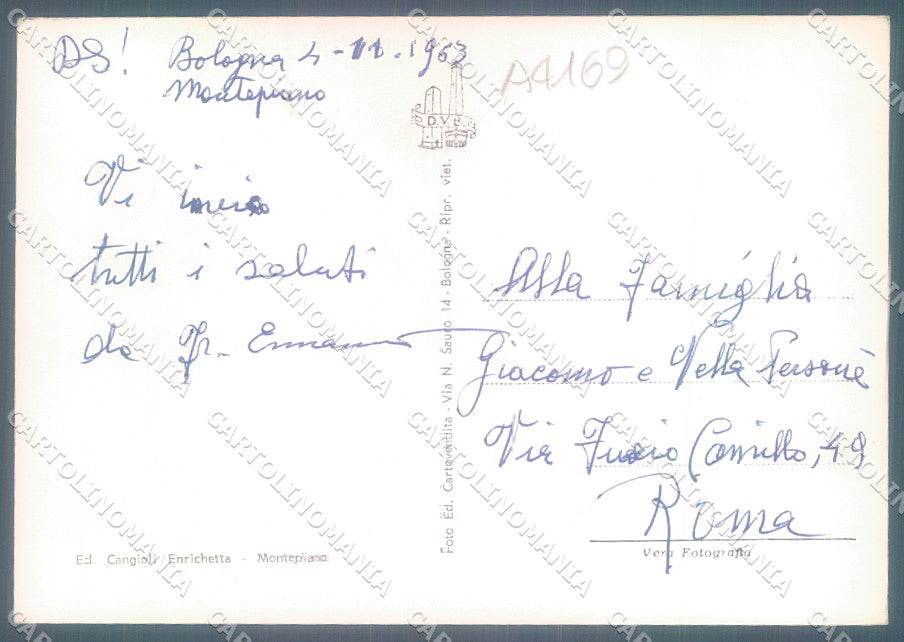 DS! Bologna 4-11.1963
Montepiano
A4169
Vi invio
tutti i saluti
da Fr. Ermanno
D.V.
Foto Ed. Cartovendita - Via N. Sauro 14 - Bologna - Ripr. viet.
Alla Famiglia
Giacomo e Vella
Via Furio Camillo, 49
Roma
Vera Fotografia
Ed. Cangioli Enrichetta - Montepiano
CARTOLINOMANIA